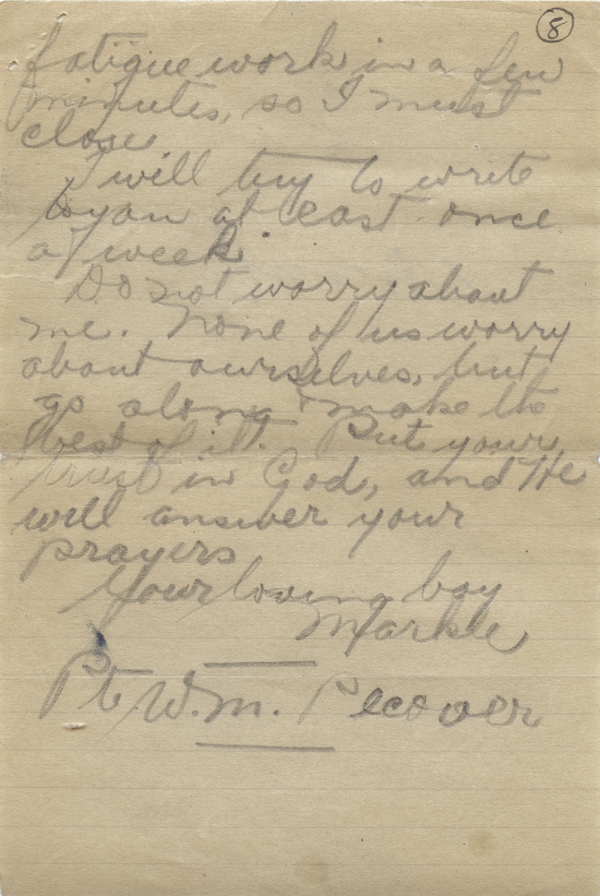 8
fatigue work in a few
minutes, so I must
close
I will try to write
to you at least once
a week.
Do not worry about
me. None of us worry
about ourselves, but
go along & make the
best of it. Put your
trust in God, and He
will answer your
prayers
Your loving boy
Markle
Pte W.M. Pecover